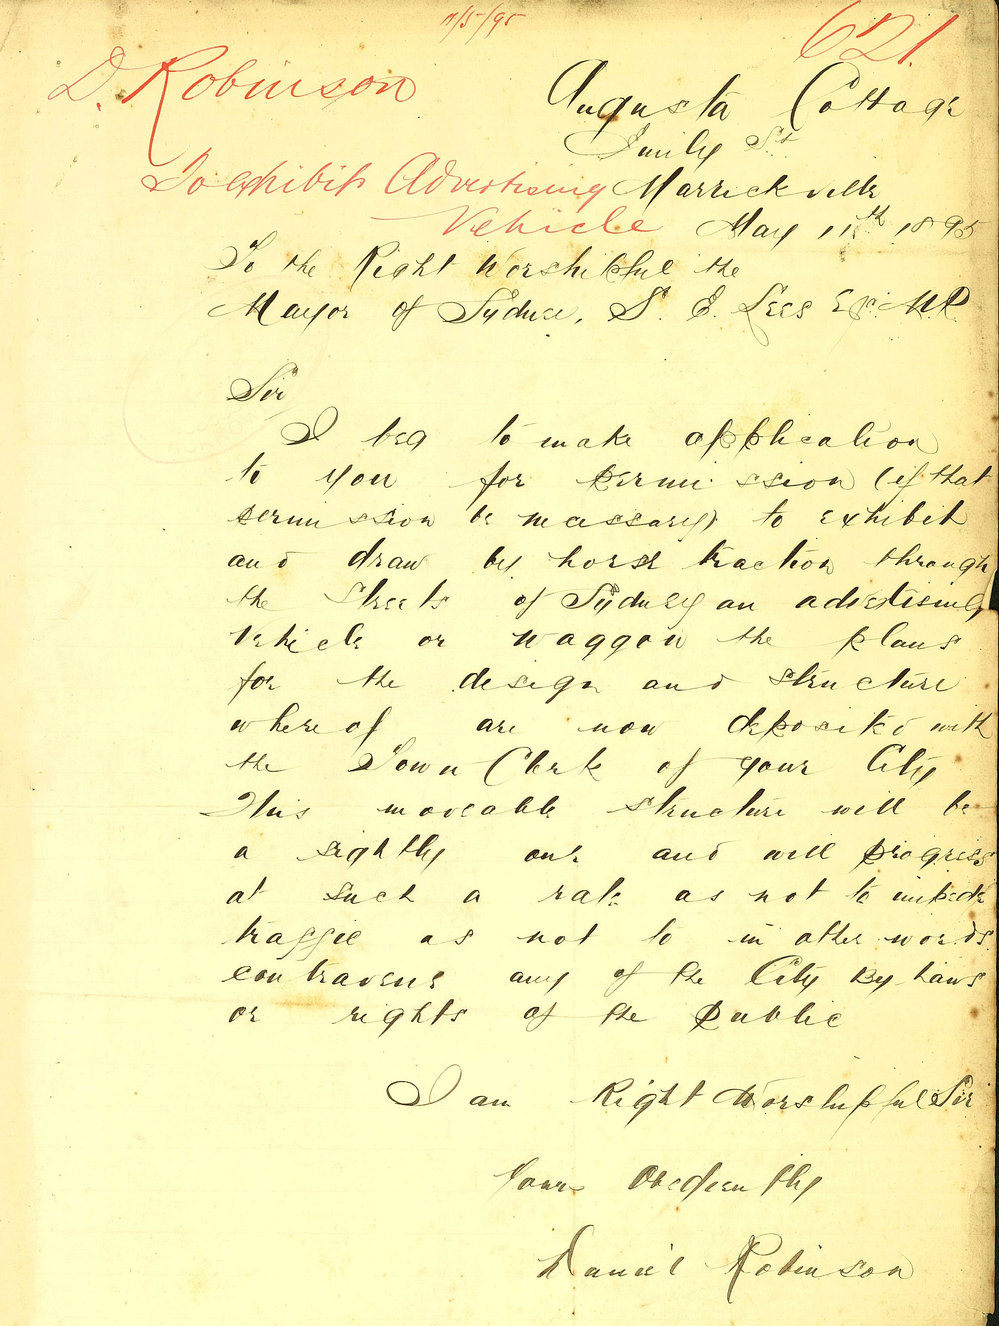 11/5/95
621.
D. Robinson
Augusta Cottage
Emily St
To exhibit Advertising Marrickville
Vehicle May 11th 1895
To the Right Worshipful the
Mayor of Sydney, S. E. Lees Esq. M.P.
Sir
I beg to make application
to you for permission (if that
permission be necessary) to exhibit
and draw by horse traction through
the streets of Sydney an advertising
vehicle or waggon the plans
for the design and structure
whereof are now deposited with
the Town Clerk of your City
This moveable structure will be
a sightly one and will progress
at such a rate as not to impede
traffic as not to in other words
contravene any of the City By-Laws
or rights of the Public
I am Right Worshipful Sir
Yours Obediently
Daniel Robinson